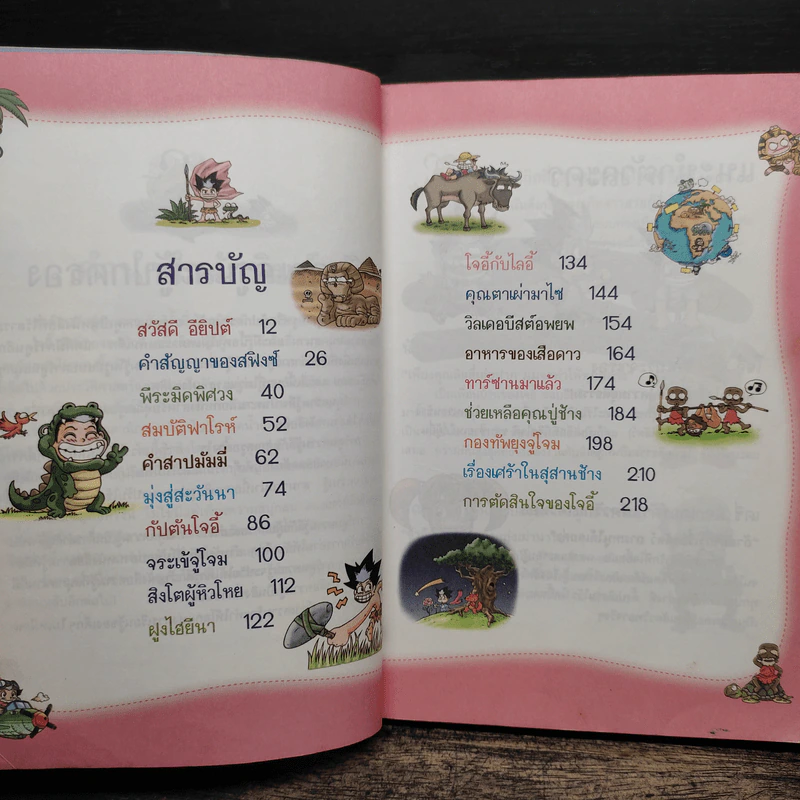 สารบัญ
สวัสดี อียิปต์ 12
คำสัญญาของสฟิงซ์ 26
พีระมิดพิศวง 40
สมบัติฟาโรห์ 52
คำสาปมัมมี่ 62
มุ่งสู่สะวันนา 74
กัปตันโจอี้ 86
จระเข้จู่โจม 100
สิงโตผู้หิวโหย 112
ฝูงไฮยีนา 122
โจอี้กับไลอี้ 134
คุณตาเผ่ามาไซ 144
วิลเดอบีสต์อพยพ 154
อาหารของเสือดาว 164
ทาร์ซานมาแล้ว 174
ช่วยเหลือคุณปู่ช้าง 184
กองทัพยุงจู่โจม 198
เรื่องเศร้าในสุสานช้าง 210
การตัดสินใจของโจอี้ 218